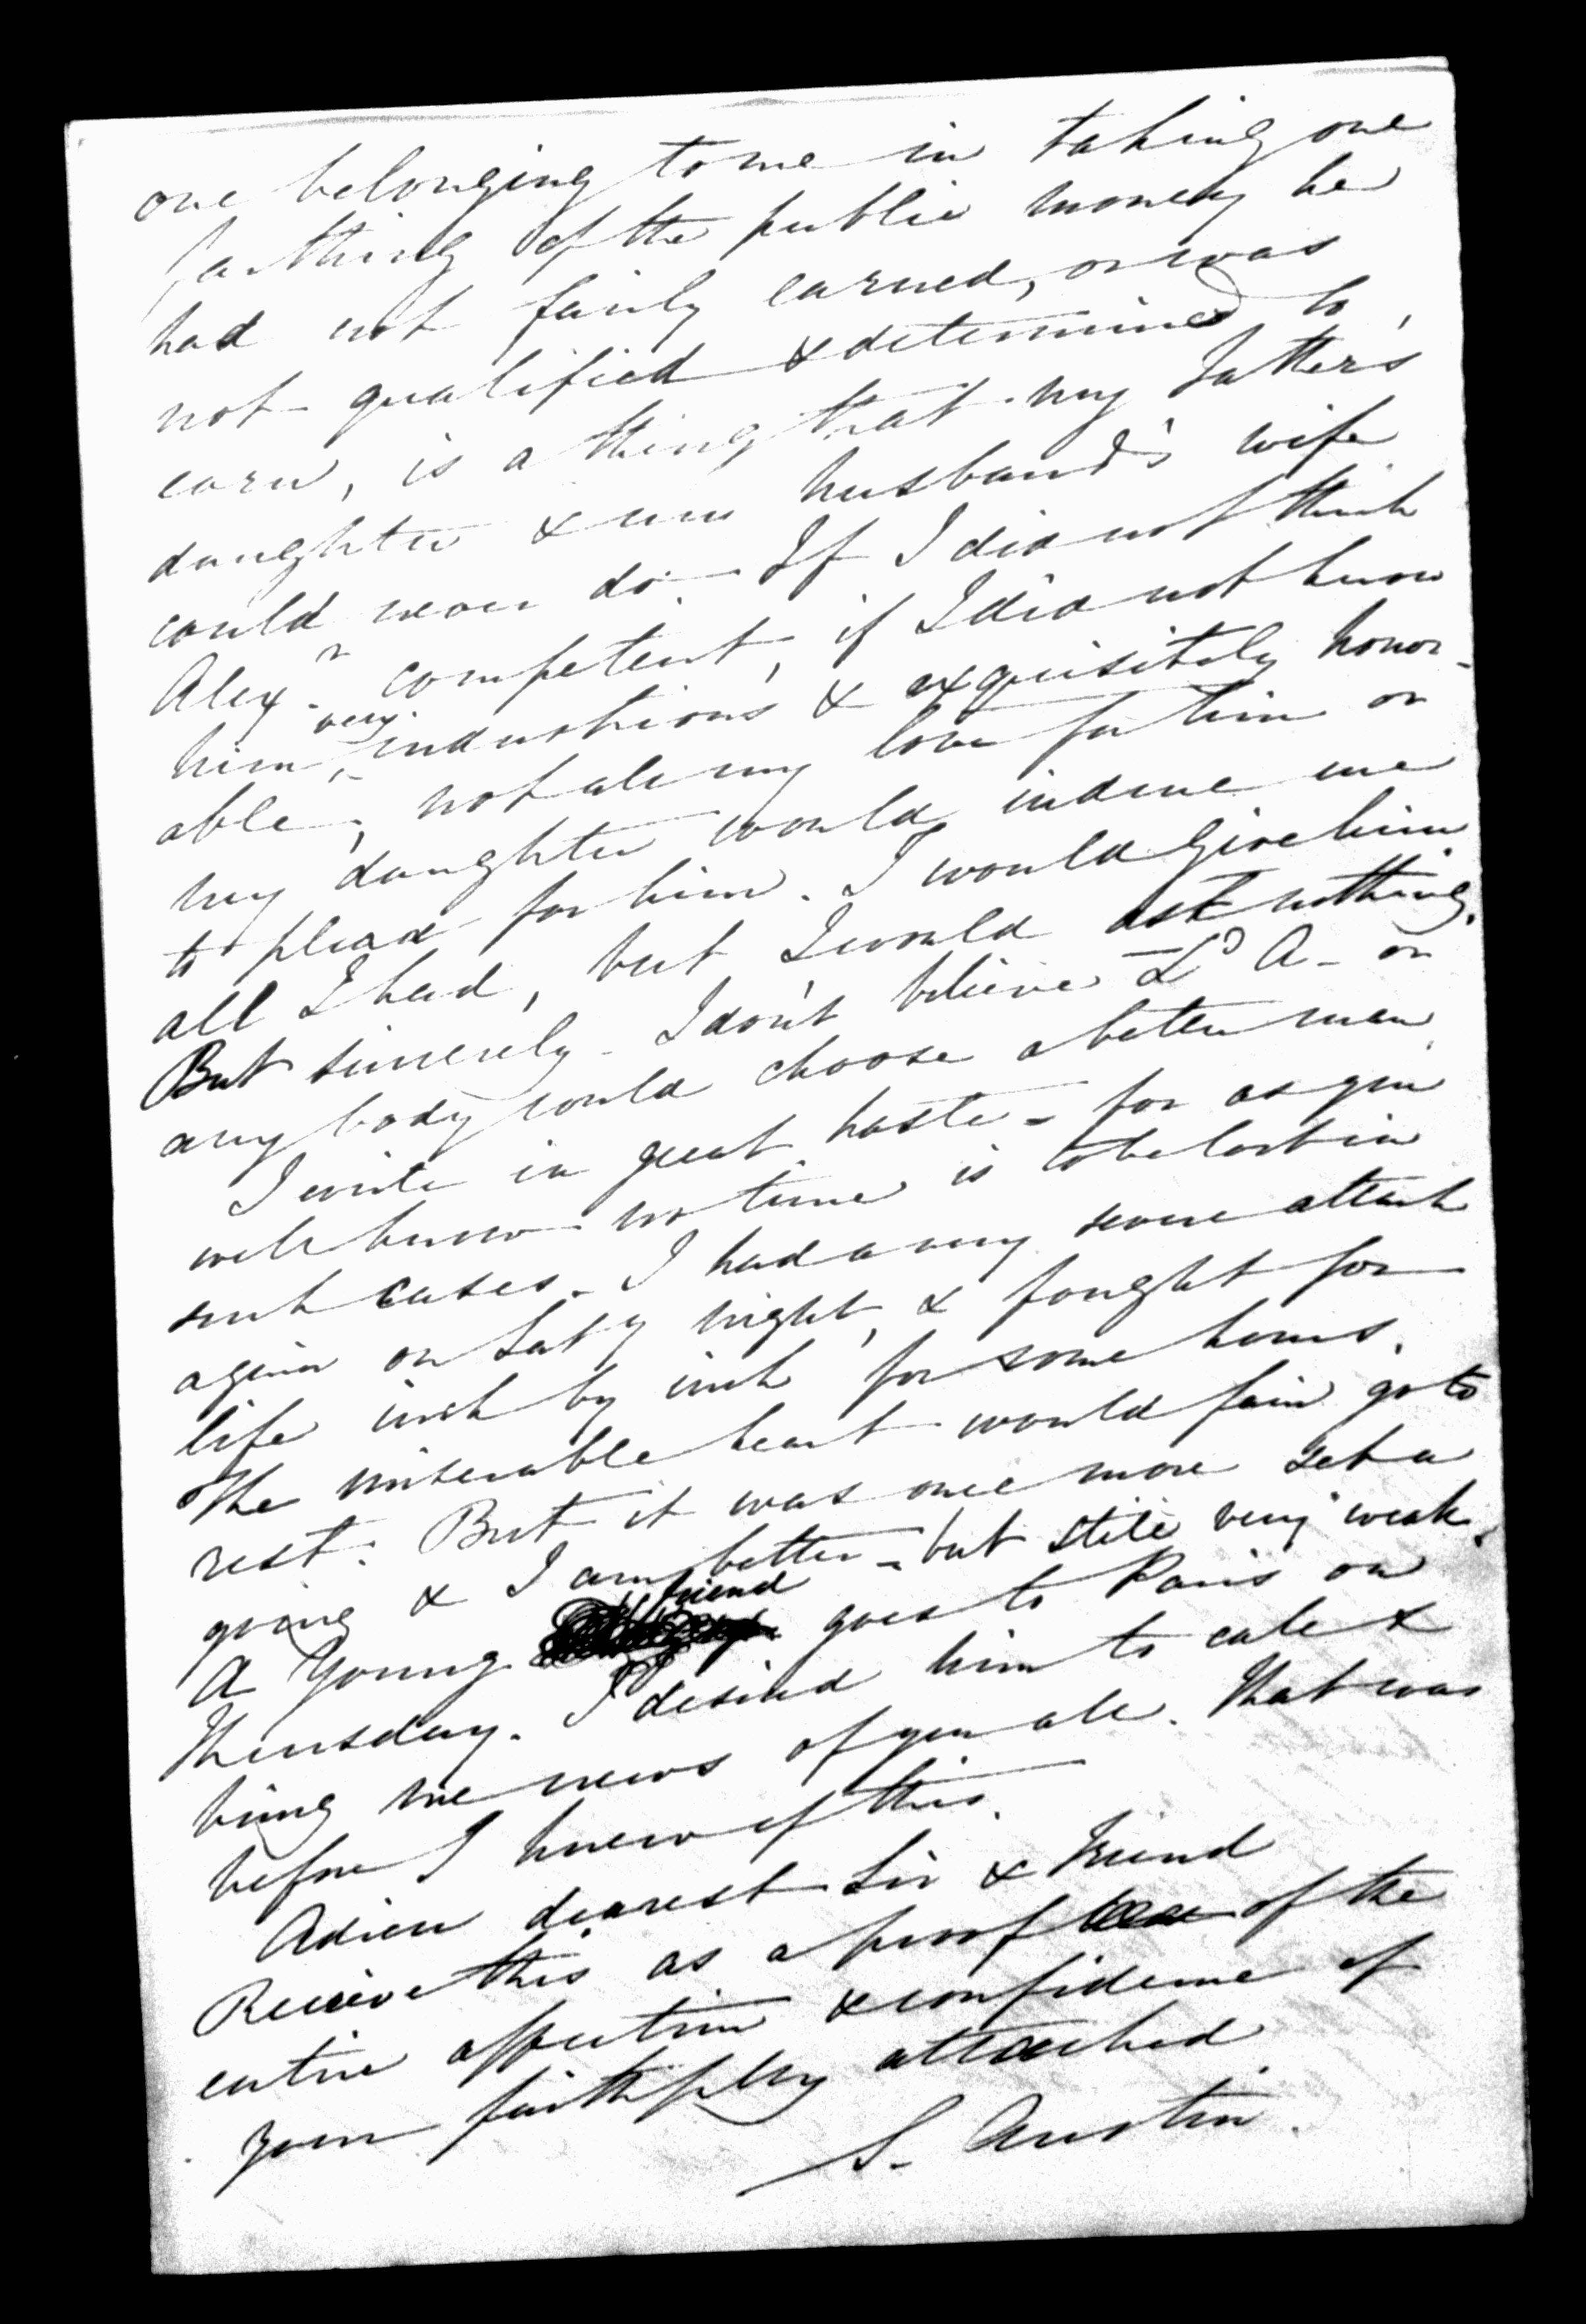 one belonging to me in taking one
farthing of the public money he
had not fairly earned, or was
not qualified & determined to
earn, is a thing that my father's
daughter & my husband's wife
could never do. If I did not think
Alexr competent, if I did not know
him very industrious & exquisitely honor-
able, not all my love for him or
my daughter would induce me
to plead for him. I would give him
all I had, but I would ask nothing.
But sincerely I don't believe Ld A- or
any body could choose a better man.
I write in great haste - for as you
well know no time is to be lost in
such cases. I had a very severe attack
again on Saty night, & fought for
life inch by inch for some hours.
The miserable heart would fain go to
rest. But it was once more set a
going & I am better - but still very weak.
A Young friend goes to Paris on
Thursday. I desired him to call &
bring me news of you all. That was
before I knew of this.
Adieu dearest Sir & friend
Receive this as a proof of the
entire affection & confidence of
your faithfully attached
S. Austin.